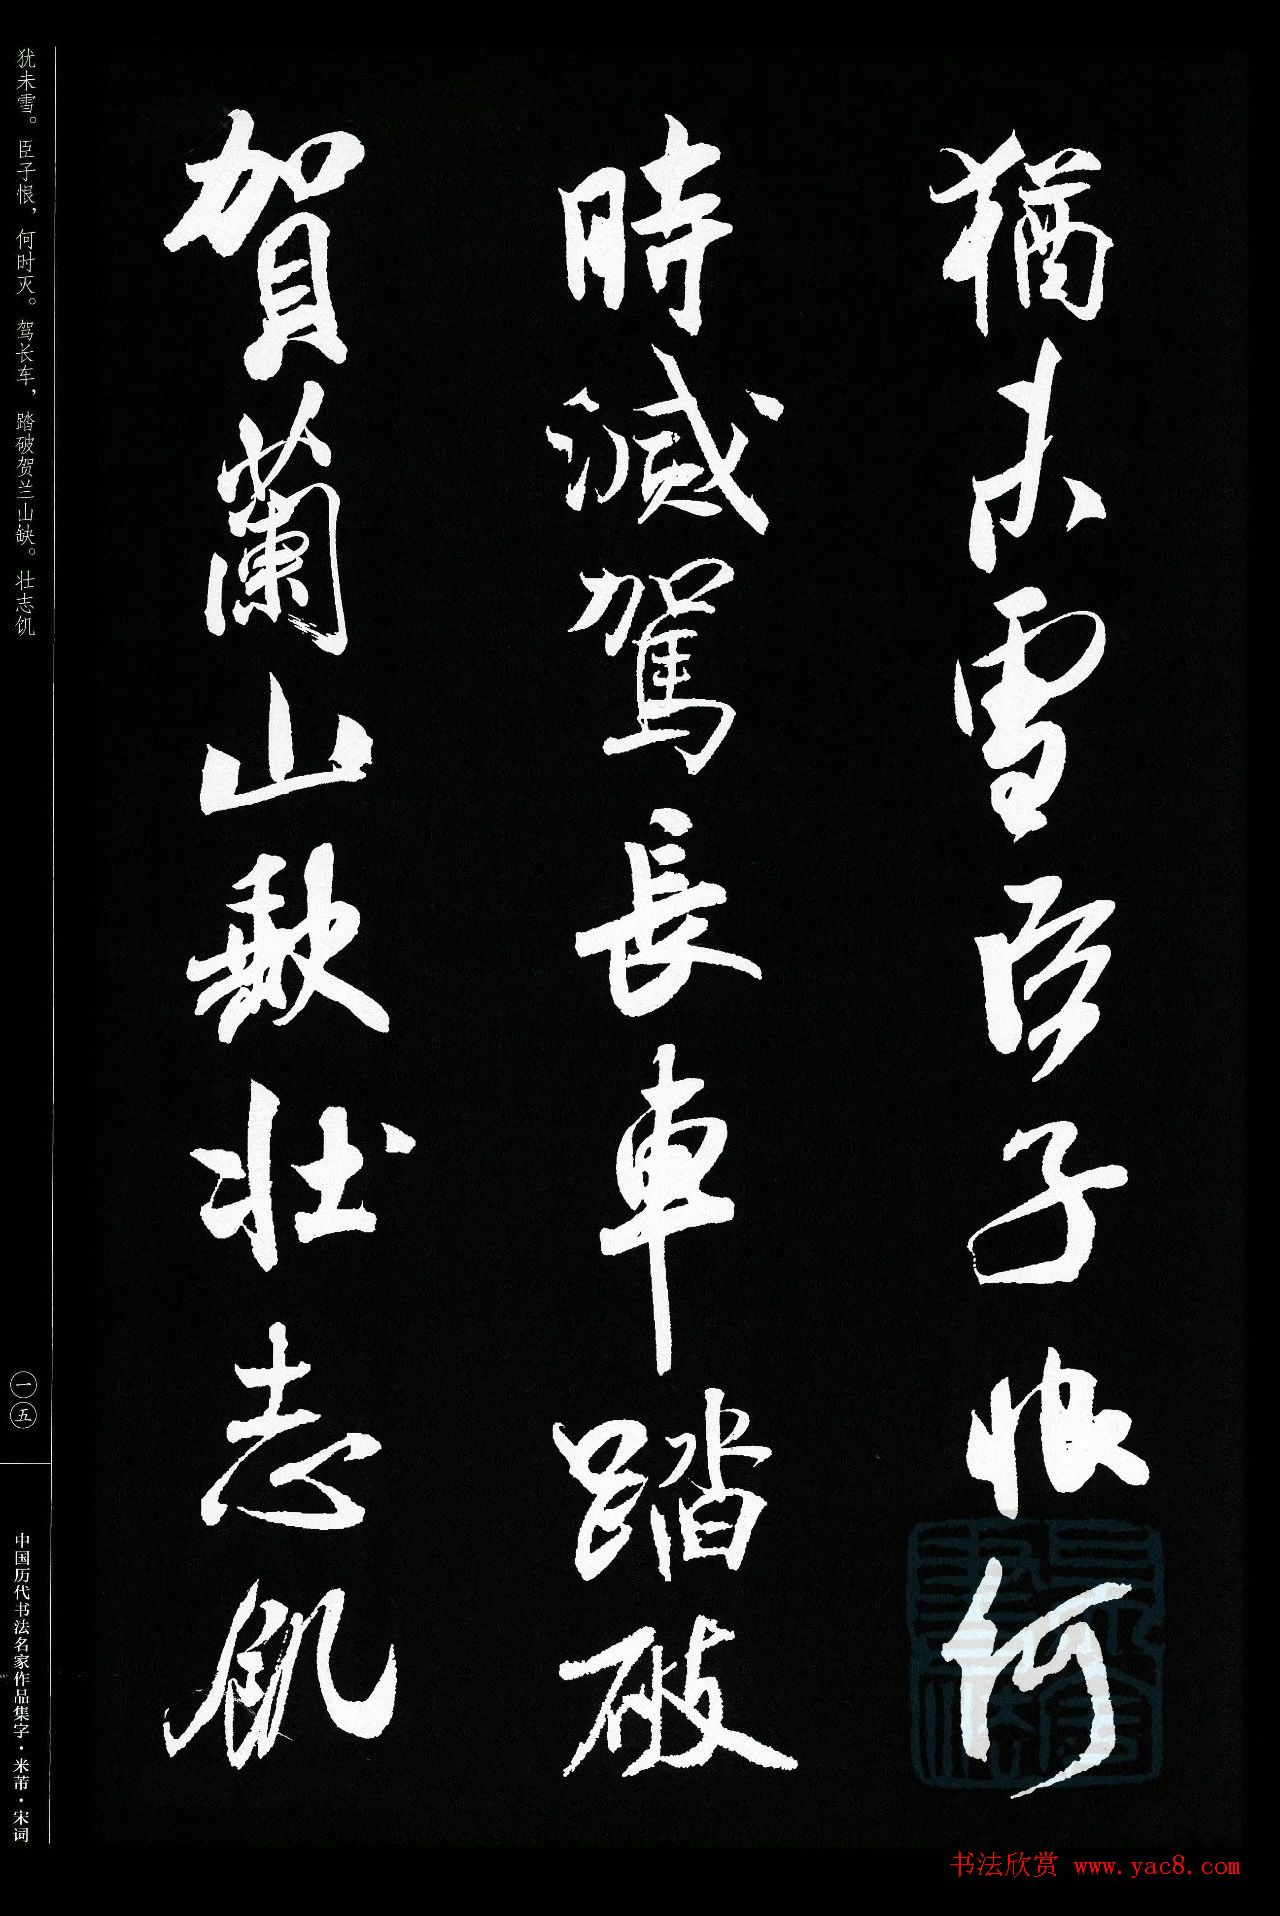 猶未雪臣子恨何
時滅駕長車踏破
賀蘭山缺壯志飢
犹未雪。臣子恨，何时灭。驾长车，踏破贺兰山缺。壮志饥
一五
中国历代书法名家作品集字·米芾·宋词
书法欣赏 www.yac8.com